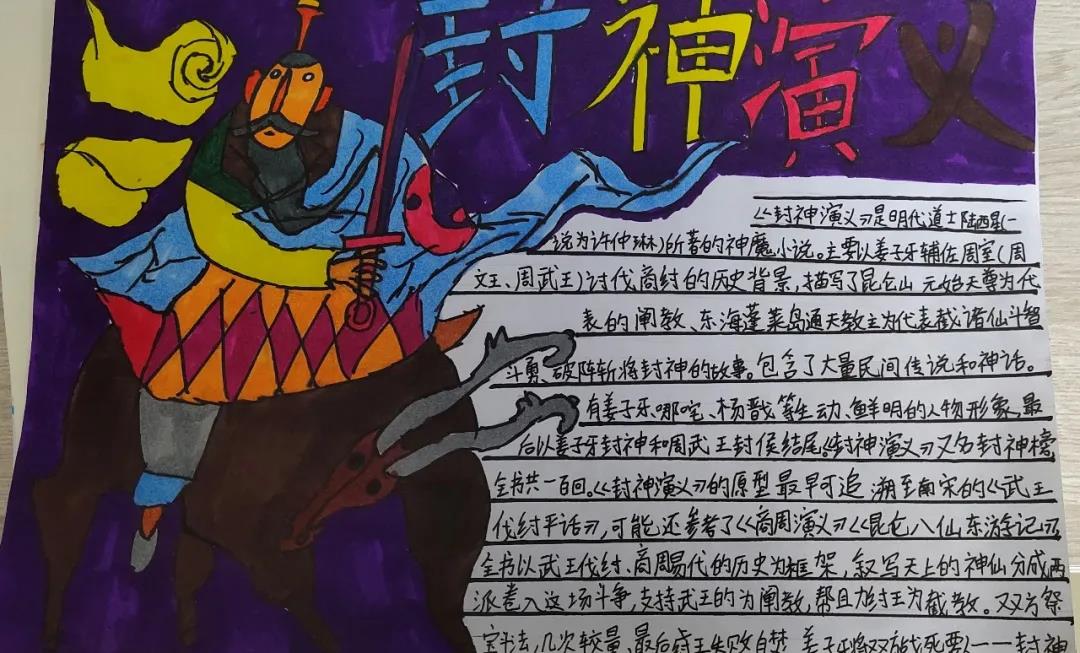 封神演义
《封神演义》是明代道士陆西星(一
说为许仲琳)所著的神魔小说。主要以姜子牙辅佐周室(周
文王、周武王)讨伐商纣的历史背景,描写了昆仑山 元始天尊为代
表的阐教、东海蓬莱岛通天教主为代表截诸仙斗智
斗勇、破阵斩将封神的故事。包含了大量民间传说和神话。
有姜子牙、哪咤、杨戬等生动、鲜明的人物形象,最
后以姜子牙封神和周武王封侯结尾《封神演义》又名封神榜
全书共一百回。《封神演义》的原型最早可追溯至南宋的《武王
伐纣平话》,可能还参考了《商周演义》《昆仑八仙东游记》
全书以武王伐纣、商周易代的历史为框架,叙写天上的神仙分成两
派卷入这场斗争,支持武王的为阐教,帮且力纣王为截教。双方祭
宝斗法,几次较量,最后纣王失败自焚,姜子牙将双方战死要人一一封神